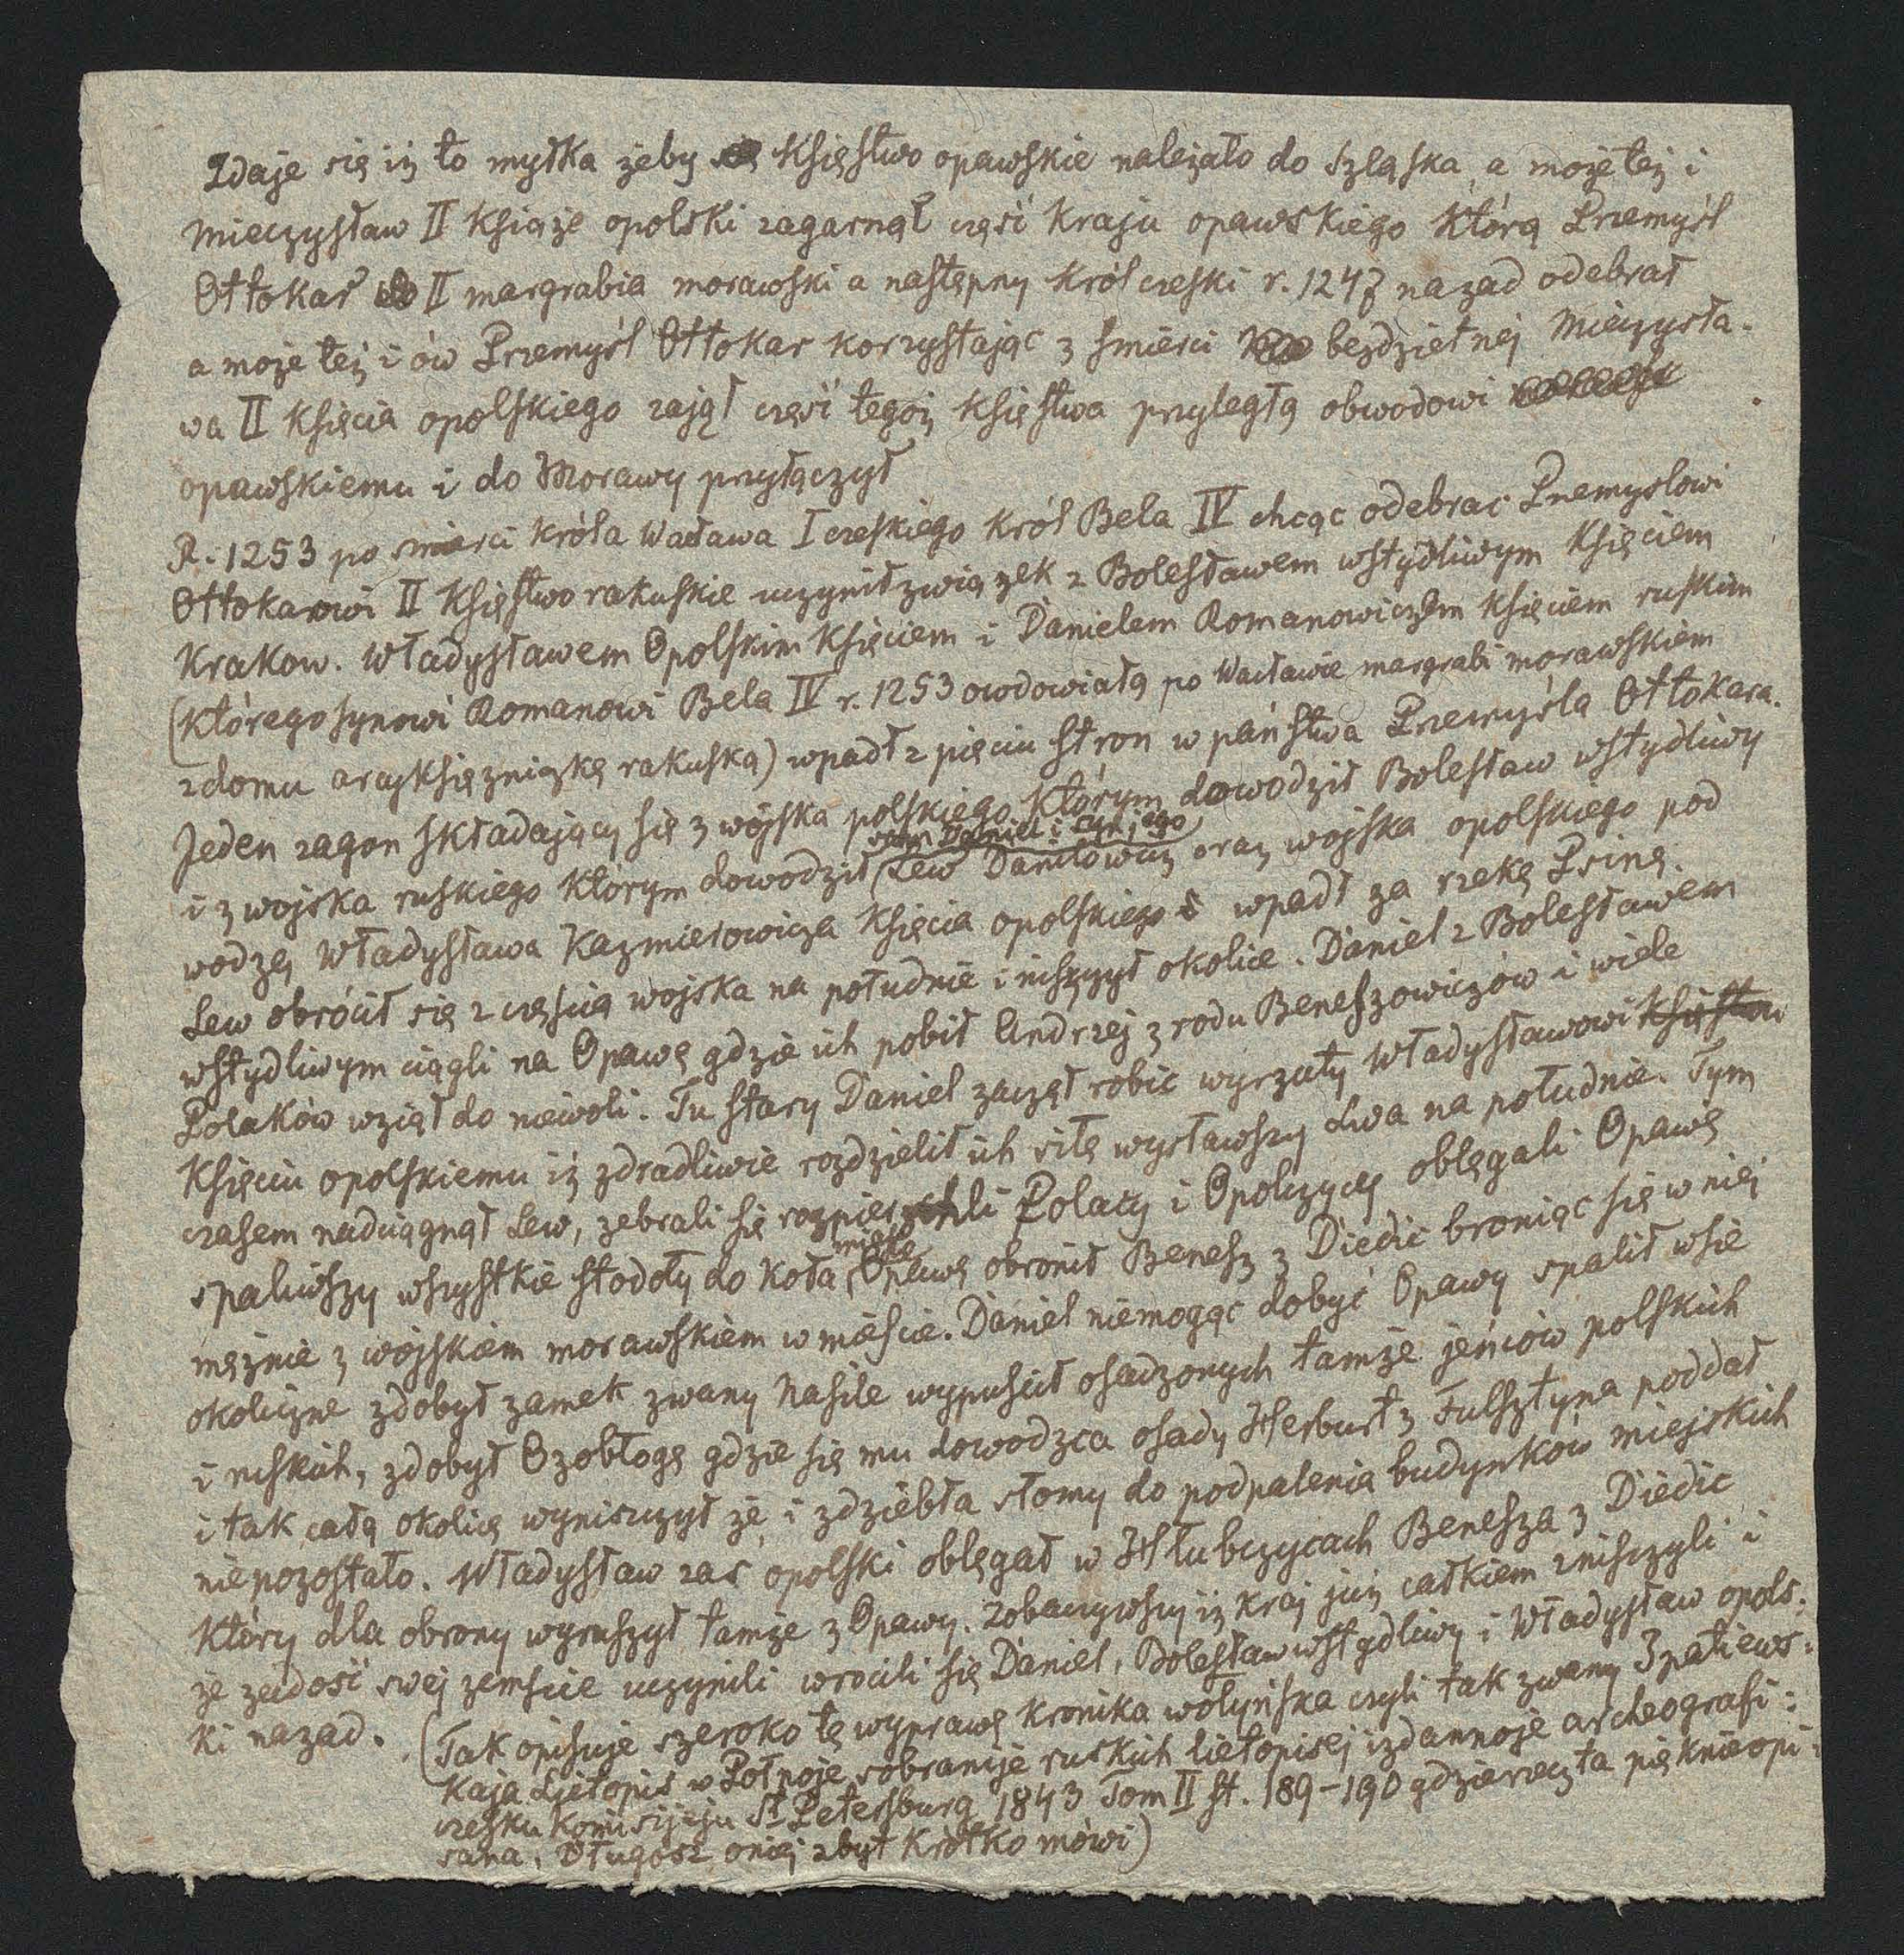 Zdaje się iż to myłka żeby Księstwo opawskie należało do Szląska, a może też i
Mieczysław II Książe opolski zagarnął część Kraju opawskiego którą Przemyśl
Ottokar II margrabia morawski a następny król czeski r. 1247 nazad odebrał
a może też i ów Przemyśl Ottokar korzystając z śmierci bezdzietnej Mieczysła-
wa II Księcia opolskiego zajął część tegoż Księstwa przyległą obwodowi
opawskiemu i do Morawy przyłączył
R. 1253 po śmierci króla Wacława I czeskiego Król Bela IV chcąc odebrac Przemyslowi
Ottokarowi II Księstwo rakuskie uczynił związek z Bolesławem wstydliwym Księciem
Krakow. Władysławem Opolskim Księciem i Danielem Romanowiczem Księciem ruskim
(Którego synowi Romanowi Bela IV r. 1253 owdowiałą po Wacławie margrabi morawskiem
z domu arcyksięzniczkę rakuską) wpadł z pięciu stron w państwa Przemyśla Ottokara.
Jeden zagon składający się z wojska polskiego Którym dowodził Bolesław wstydliwy
i z wojska ruskiego Którym dowodził (sam Daniel i syn jego Lew Daniłowicz oraz wojska opolskiego pod
wodzą Władysława Kazmierowicza Księcia opolskiego wpadł za rzekę Psinę.
Lew obrócił się z częścią wojska na południe i niszczył okolice. Daniel z Bolesławem
wstydliwym ciągli na Opawę gdzie ich pobił Andrzej z rodu Beneszowiczów i wiele
Polaków wziął do niewoli. Tu stary Daniel zaczął robić wyrzuty Władysławowi Księstwu
Księciu opolskiemu iż zdradliwie rozdzielił ich siłę wysławszy Lwa na południe. Tym
czasem nadciągnął Lew, zebrali się rozpierzchli Polacy i Opolczycy oblęgali Opawę
spaliwszy wszystkie stodoły do koła, miasta Opawę obronił Benesz z Diedic broniąc się w niej
mężnie z wojskiem morawskiem w mieście. Daniel niemogąc dobyć Opawy spalił wsie
okoliczne zdobył zamek zwany Nasile wypuścił osadzonych tamże jeńców polskich
i ruskich, zdobył Ozobłogę gdzie się mu dowodzca osady Herburt z Fulsztyna poddał
i tak całą okolicę wyniszczył że i zdziebła słomy do podpalenia budynków miejskich
niepozostało. Władysław zaś opolski oblęgał w Hłubczycach Benesza z Diedic
Który dla obrony wyruszył tamże z Opawy. Zobaczywszy iż kraj już całkiem zniszczyli i
że zadość swej zemście uczynili wrócili się Daniel, Bolesław wstydliwy i Władysław opols:
ki nazad. (Tak opisuje szeroko tę wyprawę kronika wołyńska czyli tak zwany Ipatiews:
Kaja Lietopis w Połnoje sobranije ruskich lietopisej izdannoje archeografi:
czesku Komisijeju St Petersburg 1843 Tom II st. 189-190 gdzie rzecz ta pięknie opi:
sana, Długosz oniej zbyt krótko mówi)